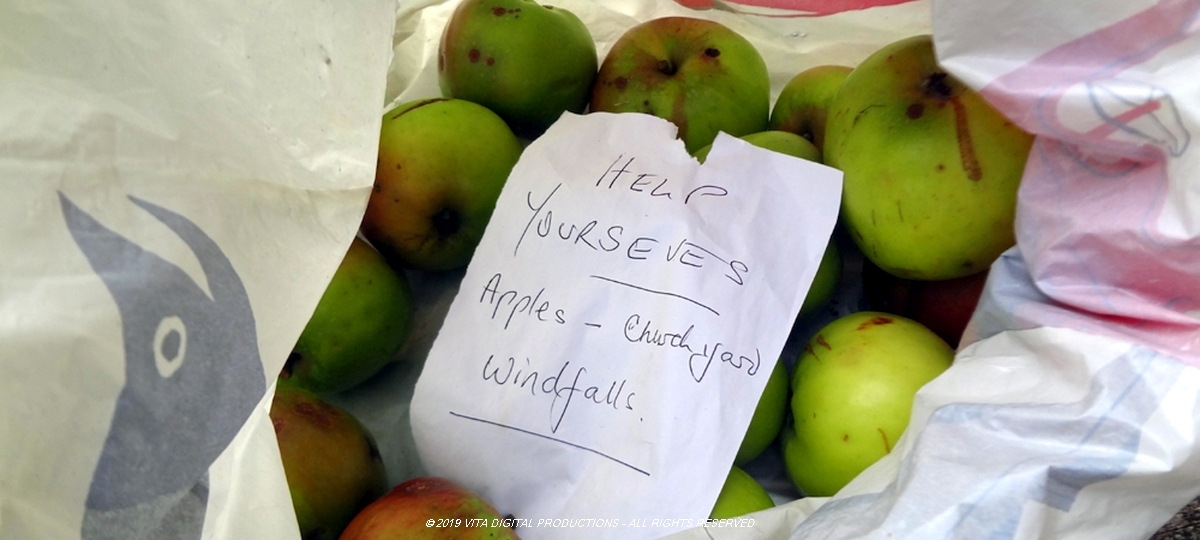 HELP
YOURSEVES
Apples - Churchyard
Windfalls.
©2019 VITA DIGITAL PRODUCTIONS - ALL RIGHTS RESERVED